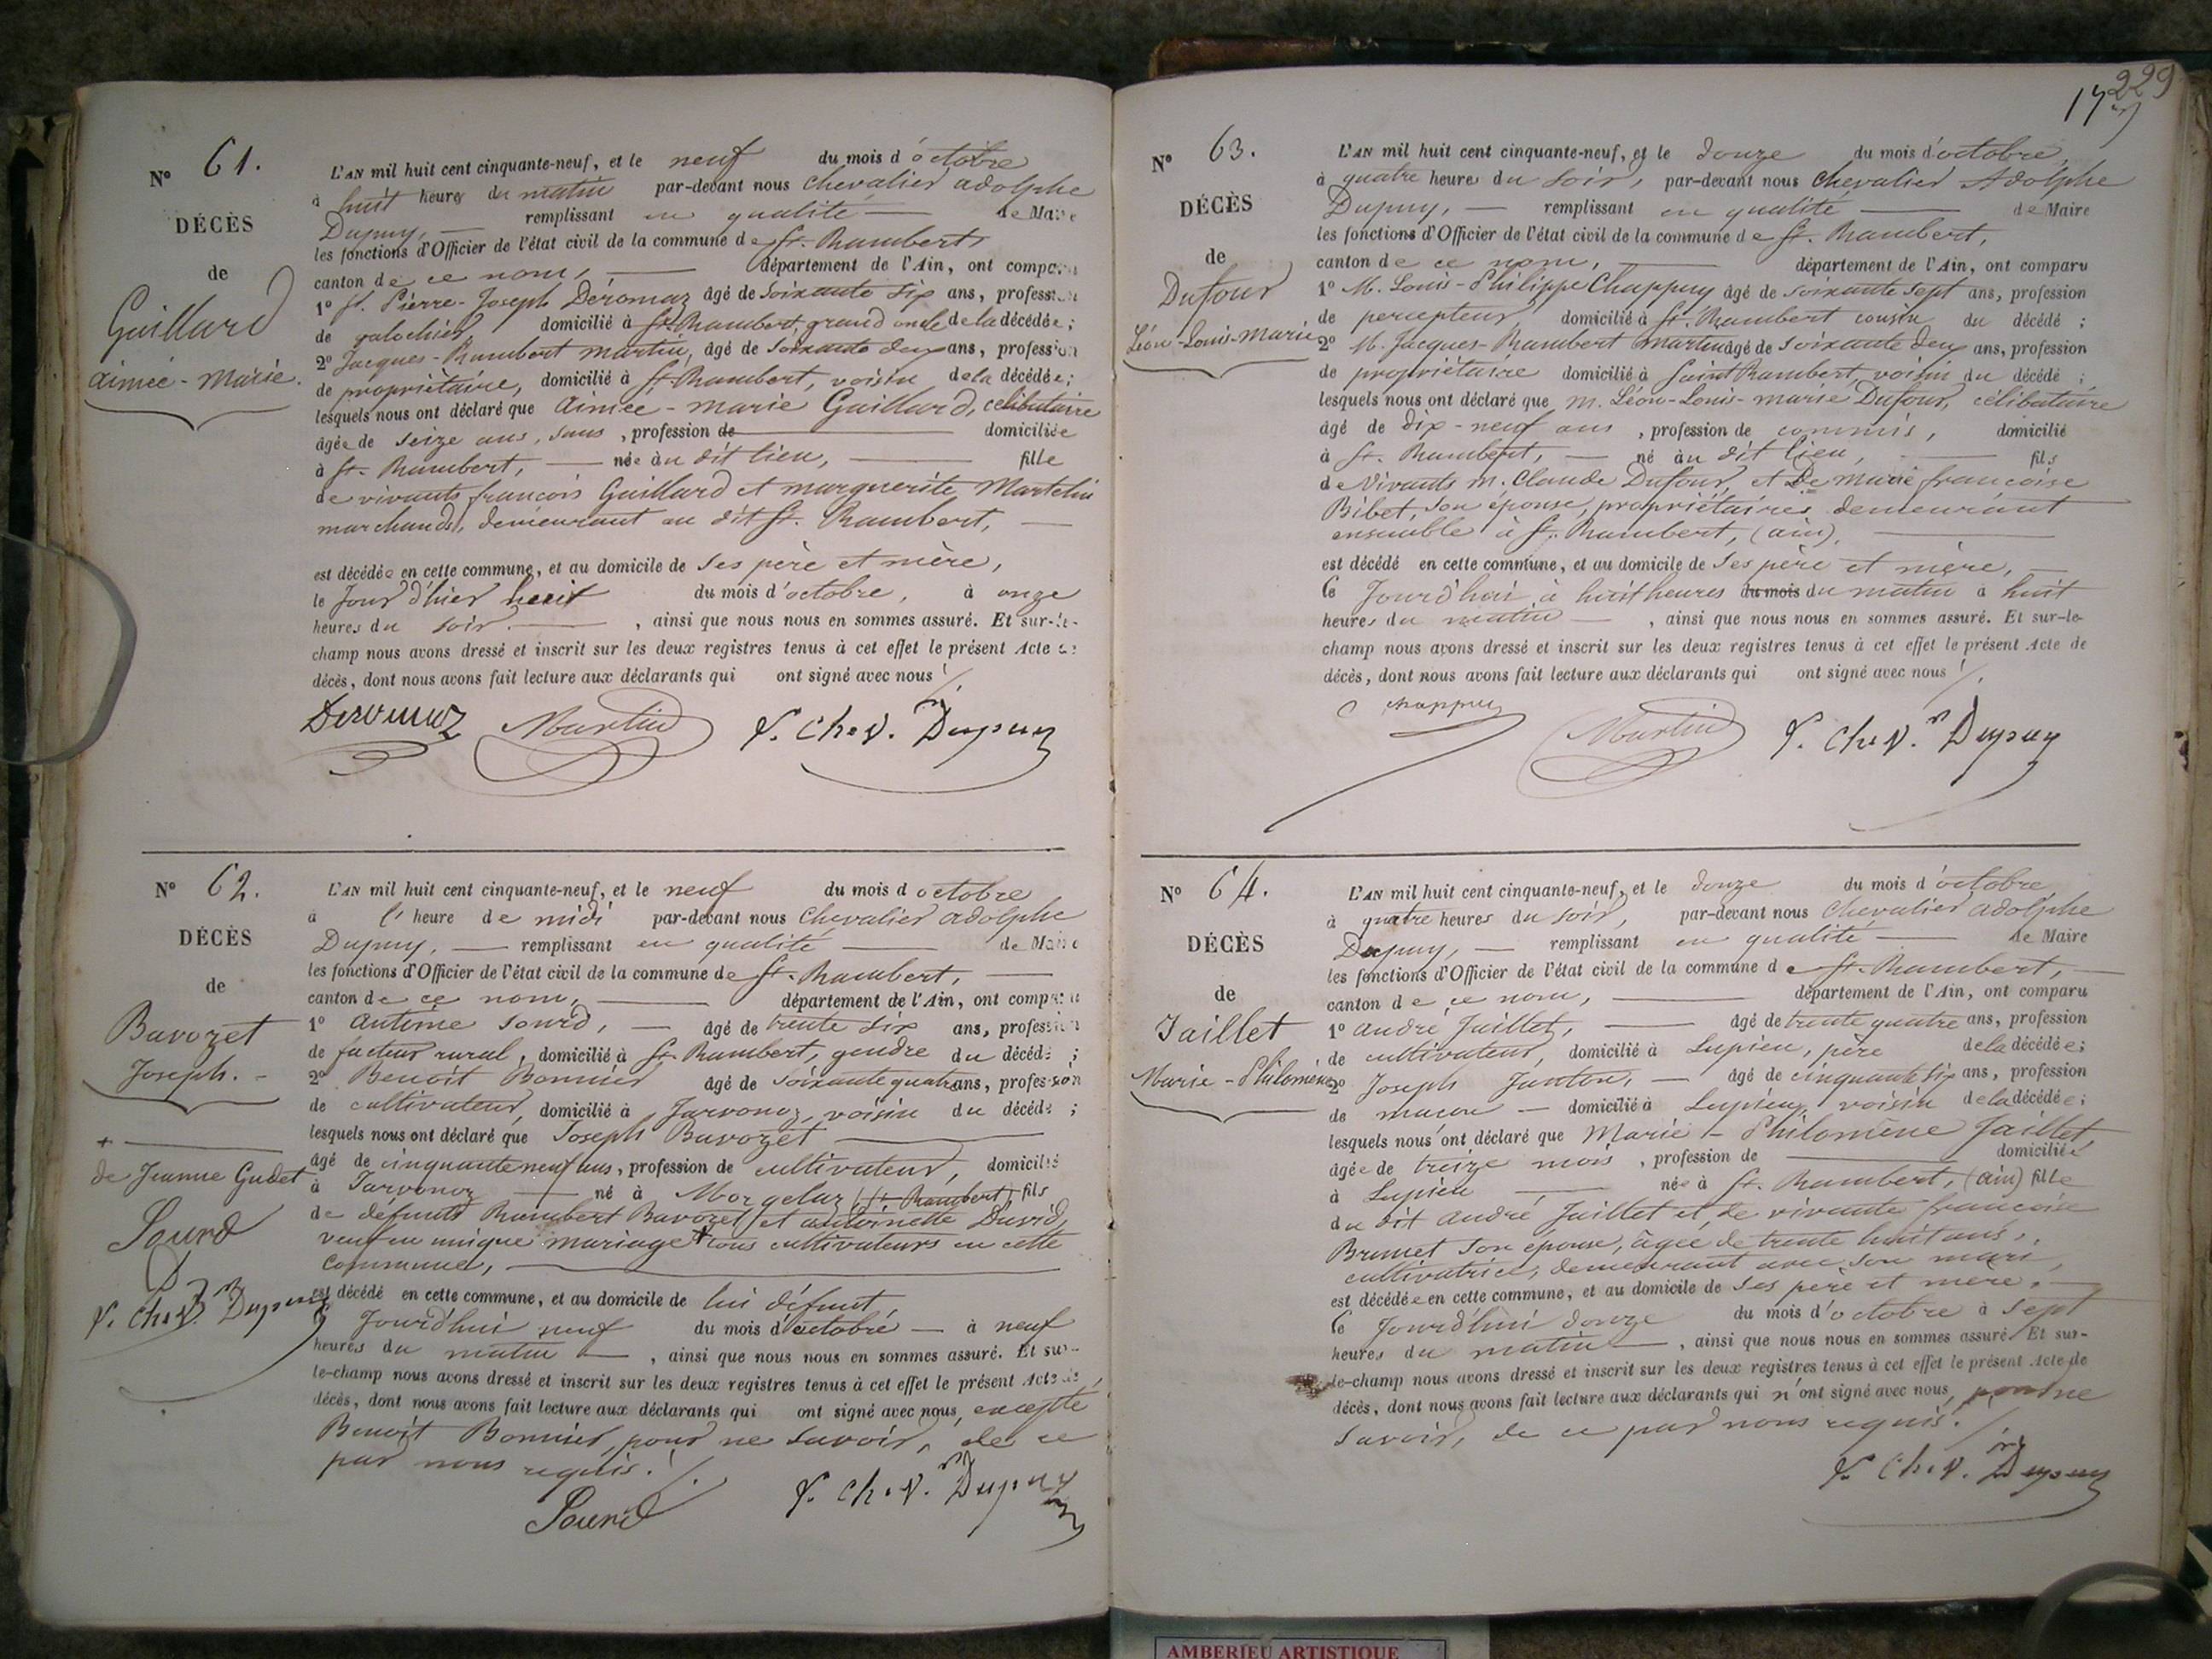 N° 61.
DÉCÈS
de
Guillard
Aimée-Marie.
L'AN mil huit cent cinquante-neuf, et le neuf du mois d'octobre
à huit heures du matin par-devant nous Chevalier Adolphe
Dupuy, — remplissant en qualité — de Maire
les fonctions d'Officier de l'état civil de la commune de St. Rambert
canton de ce nom, — département de l'Ain, ont comparu
1° St. Pierre-Joseph Déromaz âgé de Soixante six ans, profession
de galochier domicilié à St. Rambert, grand oncle de la décédée;
2° Jacques-Rambert Martin, âgé de Soixante deux ans, profession
de propriétaire, domicilié à St. Rambert, voisin de la décédée;
lesquels nous ont déclaré que Aimée-Marie Guillard, célibataire
âgée de seize ans, sans, profession de — domiciliée
à St. Rambert, — née au dit lieu, — fille
de vivants françois Guillard et marguerite Martelin
marchands, demeurant au dit St. Rambert, —
est décédée en cette commune, et au domicile de ses père et mère,
le Jour d'hier huit du mois d'octobre, à onze
heures du soir — , ainsi que nous nous en sommes assuré. Et sur-le-
champ nous avons dressé et inscrit sur les deux registres tenus à cet effet le présent Acte de
décès, dont nous avons fait lecture aux déclarants qui ont signé avec nous /.
Deromaz Martin Chev.r Dupuy
N° 62.
DÉCÈS
de
Bavozet
Joseph. -
+ —
de Jeanne Gudet
Sourd
Chev.r Dupuy
L'AN mil huit cent cinquante-neuf, et le neuf du mois d'octobre
à l'heure de midi par-devant nous Chevalier Adolphe
Dupuy, — remplissant en qualité — de Maire
les fonctions d'Officier de l'état civil de la commune de St. Rambert, —
canton de ce nom, — département de l'Ain, ont comparu
1° Antime Sourd, — âgé de trente six ans, profession
de facteur rural, domicilié à St. Rambert, gendre du décédé ;
2° Benoit Bonnier âgé de soixante quatre ans, profession
de cultivateur, domicilié à Jarvonoz, voisin du décédé ;
lesquels nous ont déclaré que Joseph Bavozet —
âgé de cinquante neuf ans, profession de cultivateur, domicilié
à Jarvonoz — né à Morgelaz (St. Rambert) fils
de défunts Rambert Bavozet et antoinette David,
veuf en unique mariage + tous cultivateurs en cette
commune, —
est décédé en cette commune, et au domicile de lui défunt,
le Jourd'hui neuf du mois d'octobre — à neuf
heures du matin — , ainsi que nous nous en sommes assuré. Et sur-
le-champ nous avons dressé et inscrit sur les deux registres tenus à cet effet le présent Acte de
décès, dont nous avons fait lecture aux déclarants qui ont signé avec nous, excepté
Benoit Bonnier, pour ne savoir, de ce
par nous requis. /.
Sourd Chev.r Dupuy
229
N° 63.
DÉCÈS
de
Dufour
Léon-Louis-Marie
L'AN mil huit cent cinquante-neuf, et le douze du mois d'octobre,
à quatre heures du soir, par-devant nous Chevalier Adolphe
Dupuy, — remplissant en qualité — de Maire
les fonctions d'Officier de l'état civil de la commune de St. Rambert,
canton de ce nom, — département de l'Ain, ont comparu
1° M. Louis-Philippe Chappuy âgé de soixante sept ans, profession
de percepteur domicilié à St. Rambert cousin du décédé ;
2° M. Jacques-Rambert Martin âgé de soixante deux ans, profession
de propriétaire domicilié à Saint Rambert, voisin du décédé ;
lesquels nous ont déclaré que M. Léon-Louis-Marie Dufour, célibataire
âgé de dix-neuf ans , profession de commis, domicilié
à St. Rambert, — né au dit lieu, — fils
de Vivants M. Claude Dufour, et De marie françoise
Bibet, son épouse, propriétaires demeurant
ensemble à St. Rambert, (ain). —
est décédé en cette commune, et au domicile de ses père et mère, —
le Jourd'hui à huit heures du mois du matin à huit
heures du matin — , ainsi que nous nous en sommes assuré. Et sur-le-
champ nous avons dressé et inscrit sur les deux registres tenus à cet effet le présent Acte de
décès, dont nous avons fait lecture aux déclarants qui ont signé avec nous /.
Chappuy Martin Chev.r Dupuy
N° 64.
DÉCÈS
de
Jaillet
Marie-Philomène
L'AN mil huit cent cinquante-neuf, et le douze du mois d'octobre
à quatre heures du soir, par-devant nous Chevalier Adolphe
Dupuy, — remplissant en qualité — de Maire
les fonctions d'Officier de l'état civil de la commune de St. Rambert, —
canton de ce nom, — département de l'Ain, ont comparu
1° André Jaillet, — âgé de trente quatre ans, profession
de cultivateur, domicilié à Lupieu, père de la décédée;
2° Joseph Janton, — âgé de cinquante six ans, profession
de maçon — domicilié à Lupieu, voisin de la décédée;
lesquels nous ont déclaré que Marie-Philomène Jaillet,
âgée de treize mois , profession de — domiciliée
à Lupieu — née à St. Rambert, (ain) fille
du dit André Jaillet et de vivante françoise
Brunet son épouse, âgée de trente huit ans,
cultivatrice, demeurant avec son mari,
est décédée en cette commune, et au domicile de ses père et mère. —
le Jourd'hui douze du mois d'octobre à sept
heures du matin — , ainsi que nous nous en sommes assuré. Et sur-
le-champ nous avons dressé et inscrit sur les deux registres tenus à cet effet le présent Acte de
décès, dont nous avons fait lecture aux déclarants qui n'ont signé avec nous, pour ne
savoir, de ce par nous requis. /.
Chev.r Dupuy
AMBERIEU ARTISTIQUE